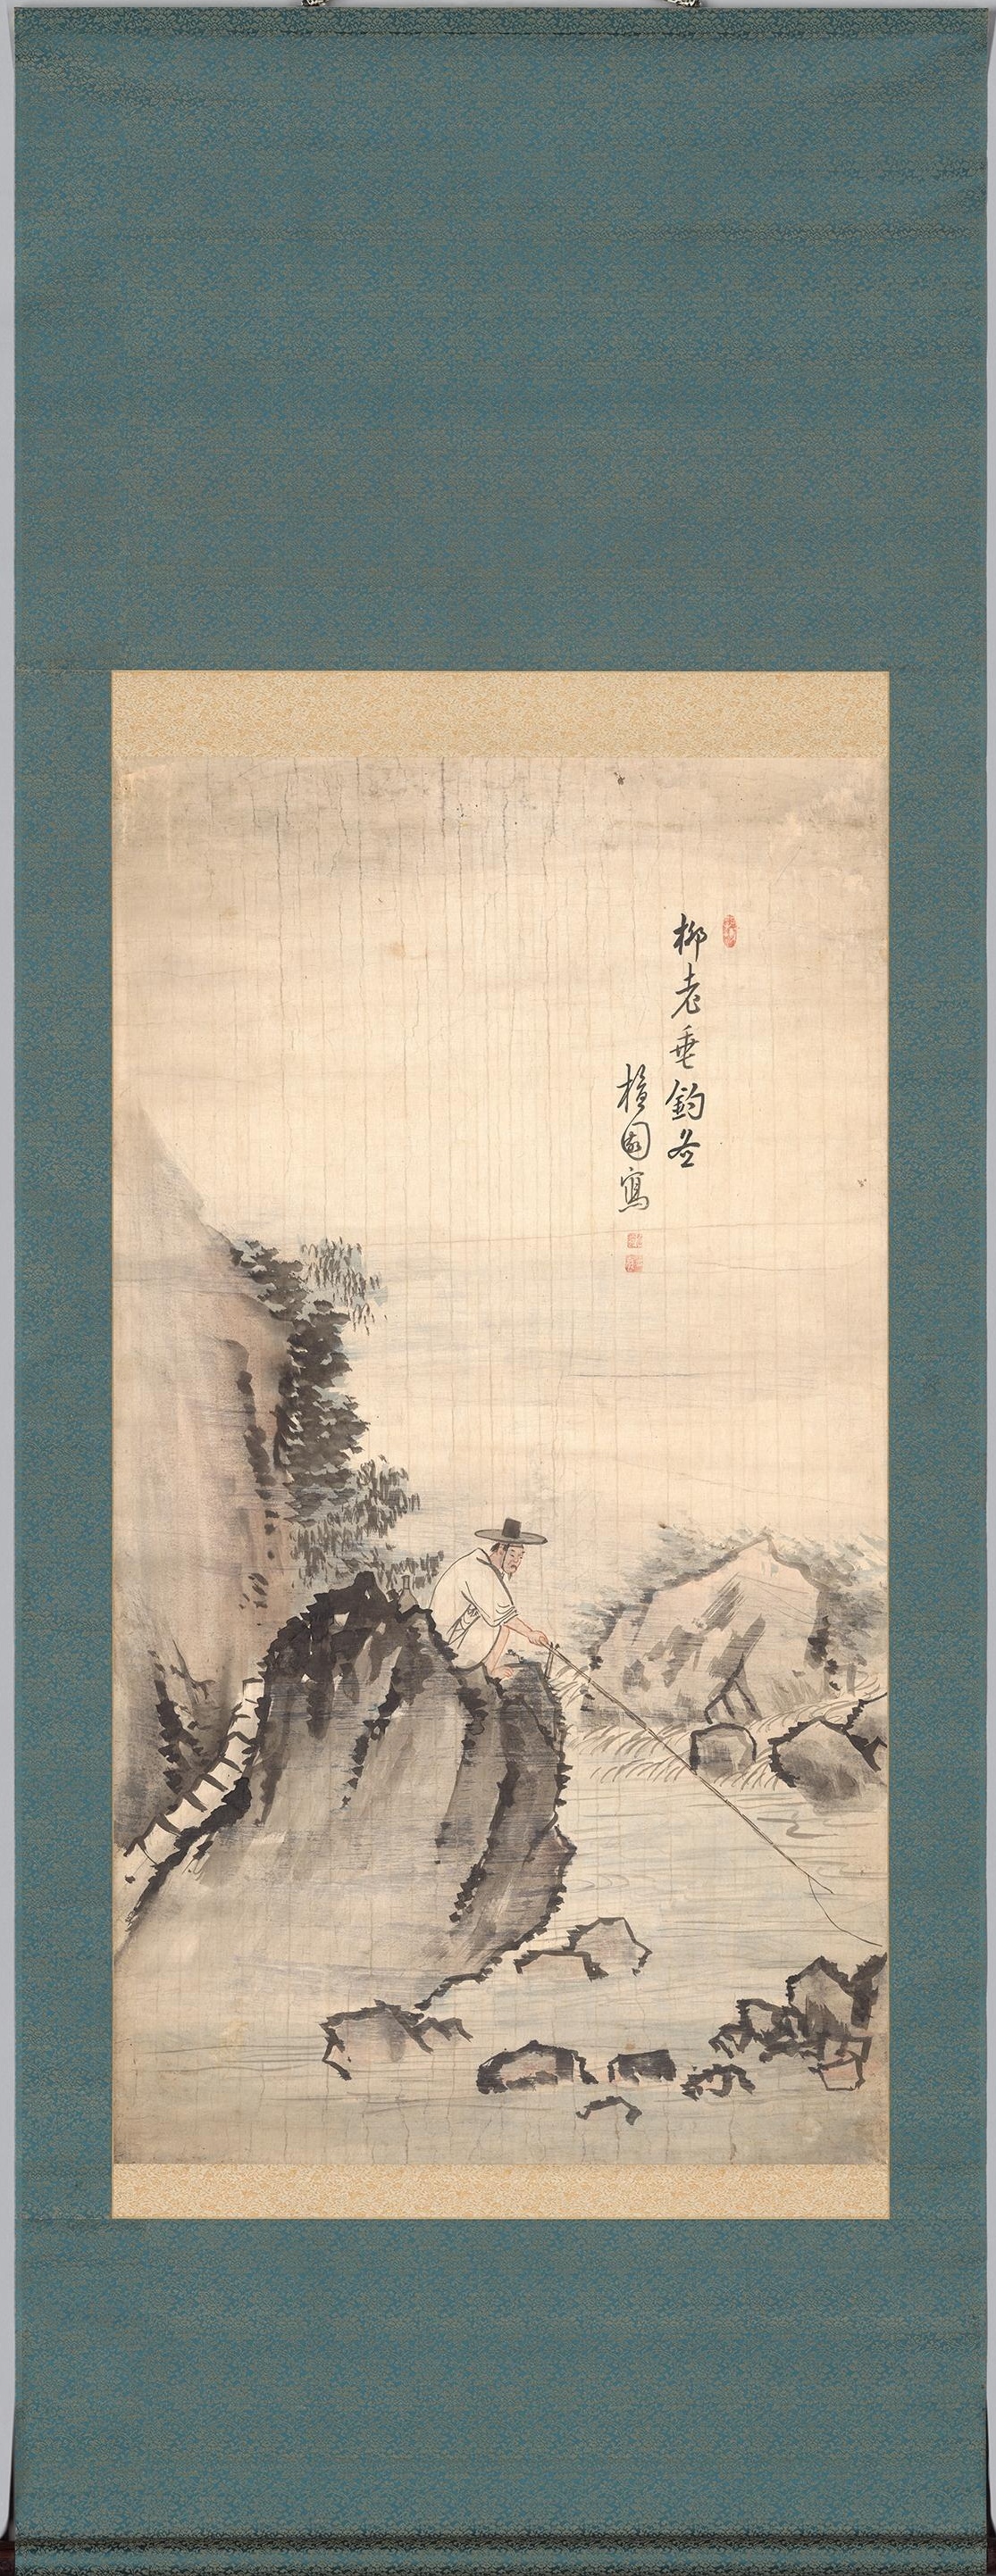 柳老垂釣圖
檀園寫